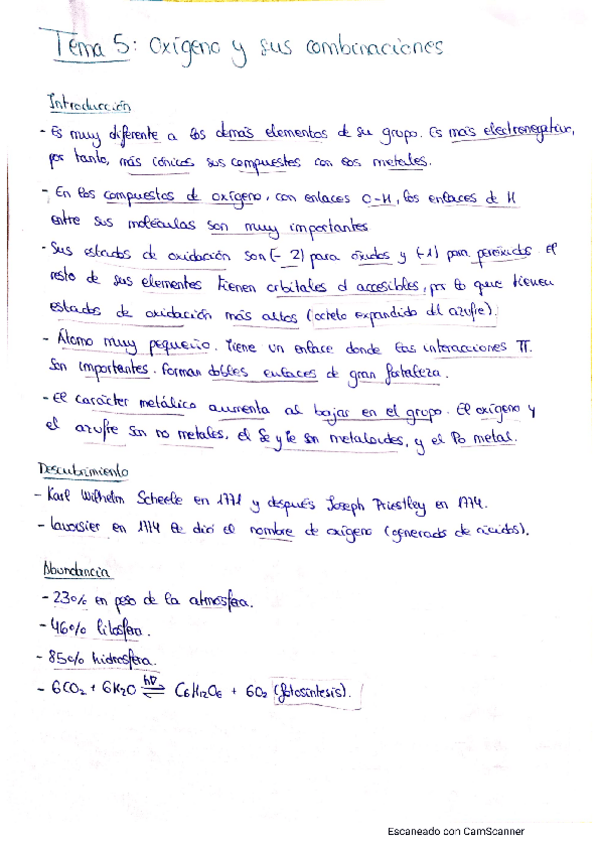 Tema 5: Oxígeno y sus combinaciones
Introducción
- Es muy diferente a los demás elementos de su grupo. Es más electronegativo,
por tanto, más iónicos sus compuestos con los metales.
- En los compuestos de oxígeno, con enlaces O-H, los enlaces de H
entre sus moléculas son muy importantes
- Sus estados de oxidación son (-2) para óxidos y (-1) para peróxidos. El
resto de sus elementos tienen orbitales d accesibles, por lo que tienen
estados de oxidación más altos (octeto expandido del azufre).
- Átomo muy pequeño. Tiene un enlace donde las interacciones π.
Son importantes. Forman dobles enlaces de gran fortaleza.
- El carácter metálico aumenta al bajar en el grupo. El oxígeno y
el azufre son no metales, el Se y Te son metaloides, y el Po metal.
Descubrimiento
- Karl Wilhelm Scheele en 1771 y después Joseph Priestley en 1774.
- Lavoisier en 1774 le dió el nombre de oxígeno (generado de ácidos).
Abundancia
- 23% en peso de la atmósfera.
- 46% litosfera.
- 85% hidrosfera.
- 6CO₂ + 6H₂O hν ⇌ C₆H₁₂O₆ + 6O₂ (fotosíntesis).
Escaneado con CamScanner